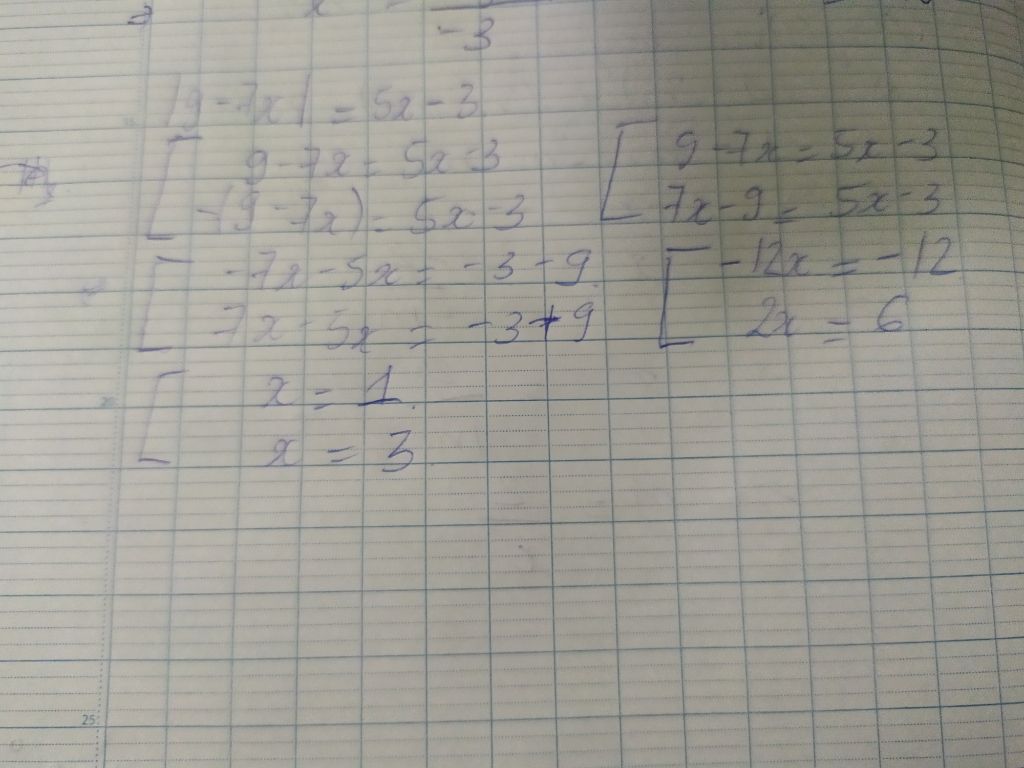 x =
-3
|9-7x| = 5x-3
9-7x = 5x-3
9-7x = 5x-3
-(9-7x) = 5x-3
7x-9 = 5x-3
-7x-5x = -3-9
-12x = -12
7x-5x = -3+9
2x = 6
x = 1
x = 3
25